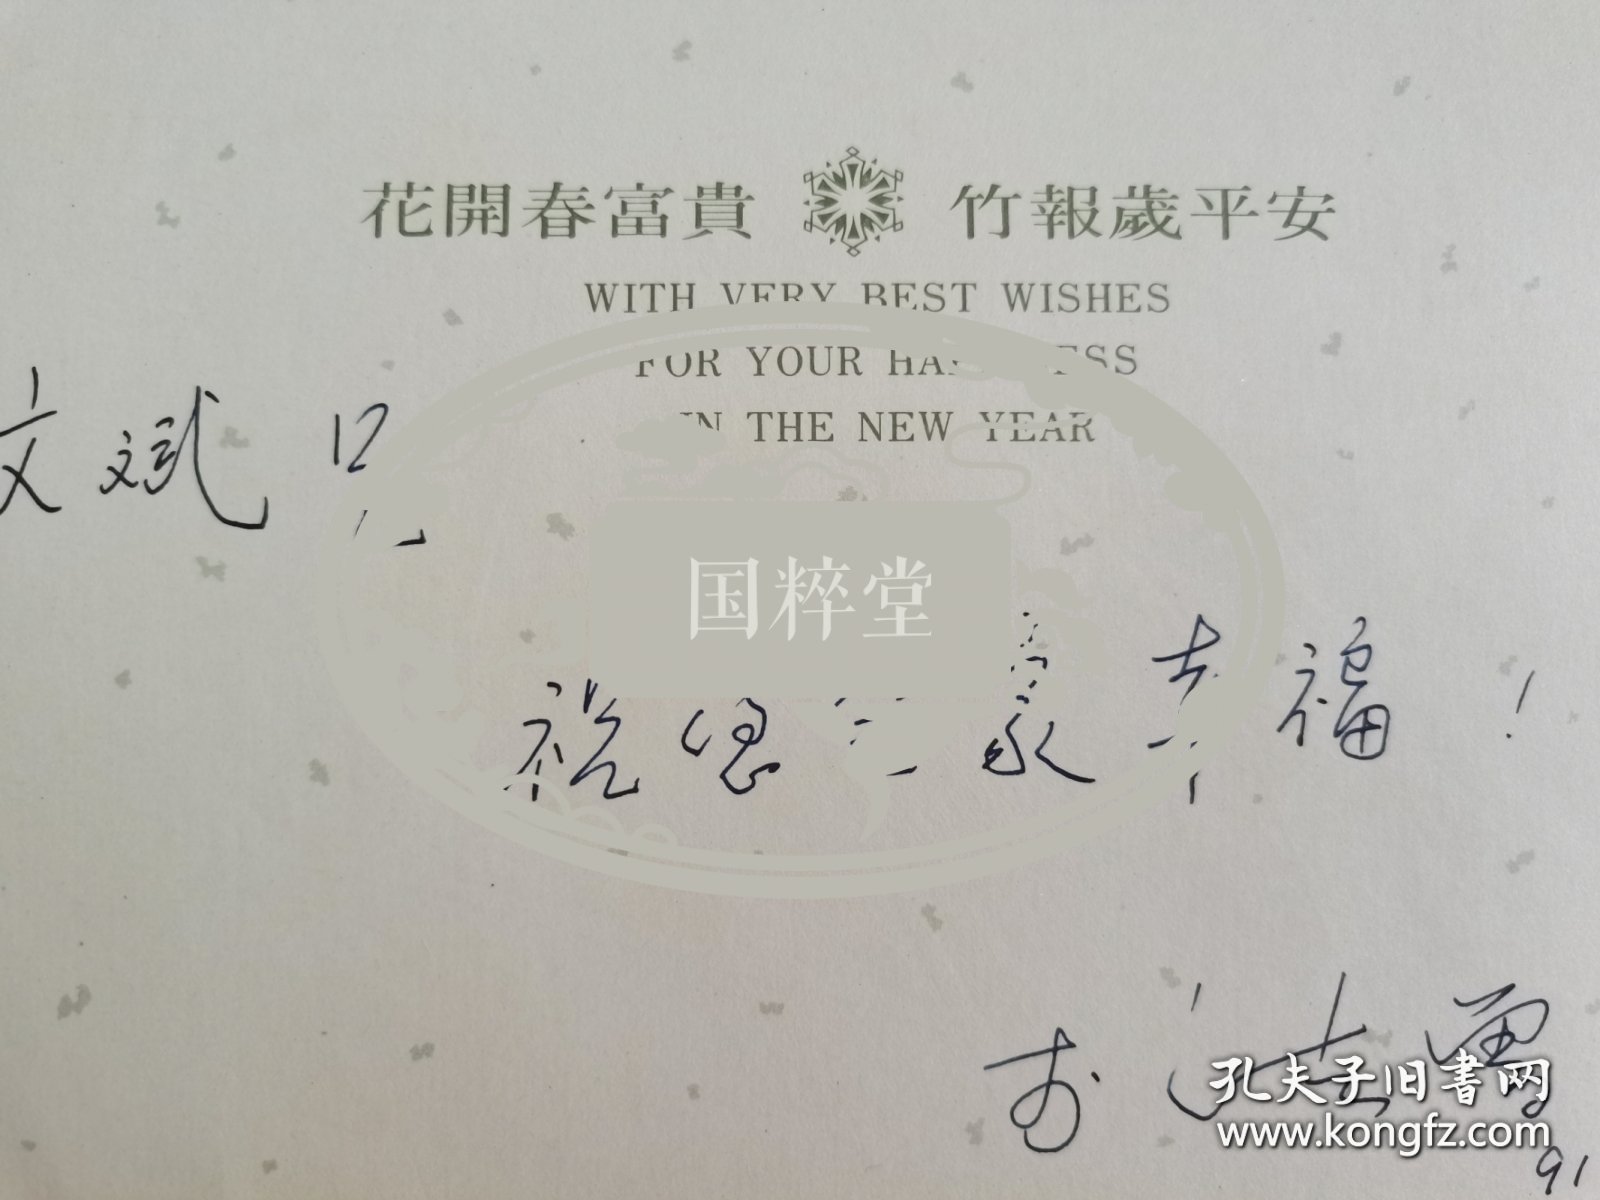 花開春富貴 竹報歲平安
WITH VERY BEST WISHES
FOR YOUR HAPPINESS
IN THE NEW YEAR
文斌兄
国粹堂
祝您全家幸福!
孔夫子旧书网
www.kongfz.com
91